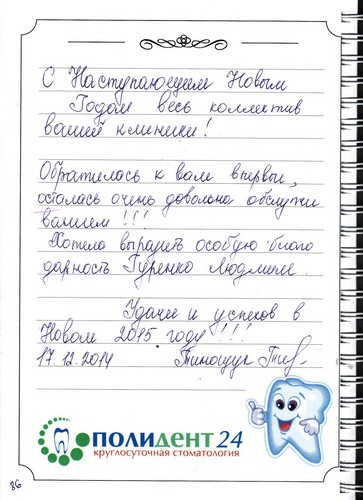 С Наступающим Новым
Годом весь коллектив
вашей клиники!
Обратилась к вам впервые,
осталась очень довольна обслужи
ванием!!!
Хотела выразить особую благо
дарность Гуренко Людмиле.
Удачи и успехов в
Новом 2015 году!!!
17.12.2014 Тимощук
ПОЛИДЕНТ 24
круглосуточная стоматология
86